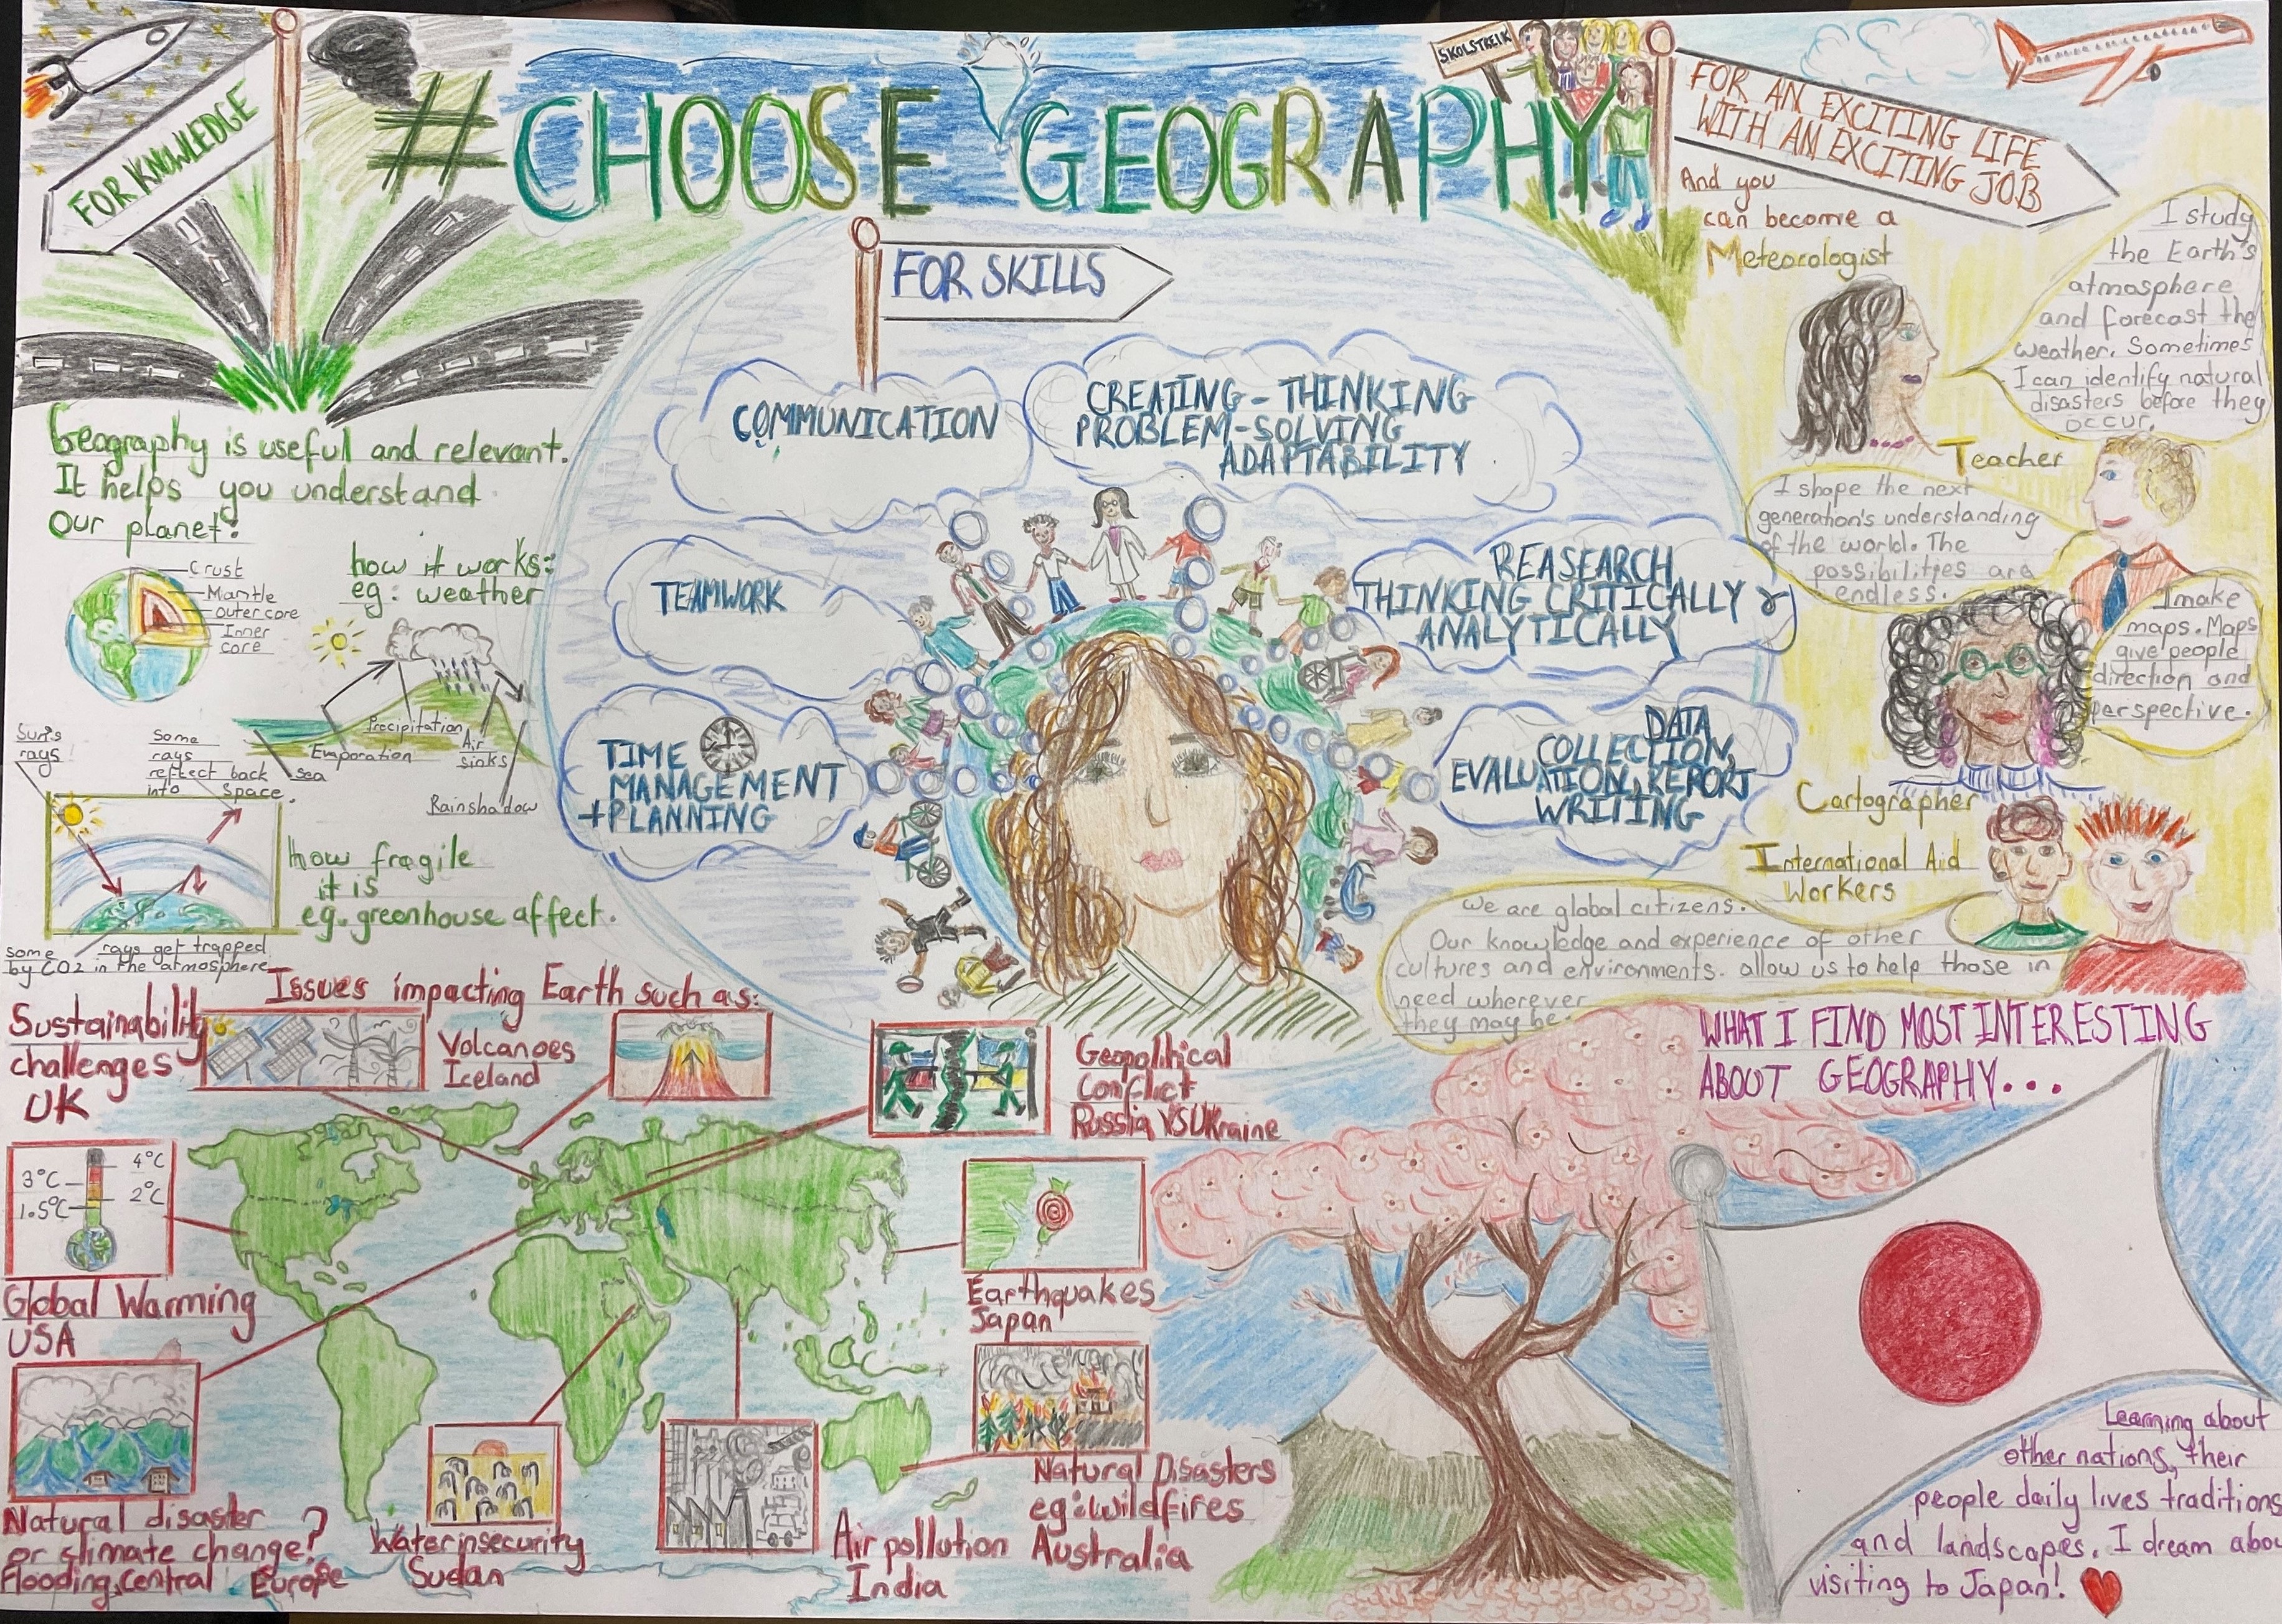 FOR KNOWLEDGE
#CHOOSE GEOGRAPHY
SKOLSTREIK
FOR AN EXCITING LIFE
WITH AN EXCITING JOB
Geography is useful and relevant.
It helps you understand
our planet:
Crust
Mantle
outer core
Inner
core
how it works:
eg: weather
Precipitation
Evaporation
Air
sinks
sea
Rainshadow
Sun's
rays
Some
rays
reflect back
into space.
some rays get trapped
by CO2 in the atmosphere
How fragile
it is
eg. greenhouse affect.
FOR SKILLS
COMMUNICATION
CREATING - THINKING
PROBLEM-SOLVING
ADAPTABILITY
TEAMWORK
REASEARCH
THINKING CRITICALLY &
ANALYTICALLY
TIME
MANAGEMENT
+PLANNING
DATA
COLLECTION,
EVALUATION, REPORT
WRITING
And you
can become a
Meteorologist
I study
the Earth's
atmosphere
and forecast the
weather. Sometimes
I can identify natural
disasters before they
occur.
Teacher
I shape the next
generation's understanding
of the world. The
possibilities are
endless.
I make
maps. Maps
give people
direction and
perspective.
Cartographer
International Aid
Workers
We are global citizens.
Our knowledge and experience of other
cultures and environments. allow us to help those in
need wherever
they may be.
Issues impacting Earth such as:
Sustainability
challenges
UK
Volcanoes
Iceland
Geopolitical
Conflict
Russia VS Ukraine
3°C
4°C
1.5°C
2°C
Global Warming
USA
Earthquakes
Japan
Natural disaster
or climate change?
Flooding, Central Europe
Water insecurity
Sudan
Air pollution
India
Natural Disasters
eg: wildfires
Australia
WHAT I FIND MOST INTERESTING
ABOUT GEOGRAPHY...
Learning about
other nations, their
people daily lives traditions
and landscapes. I dream abou
visiting to Japan!